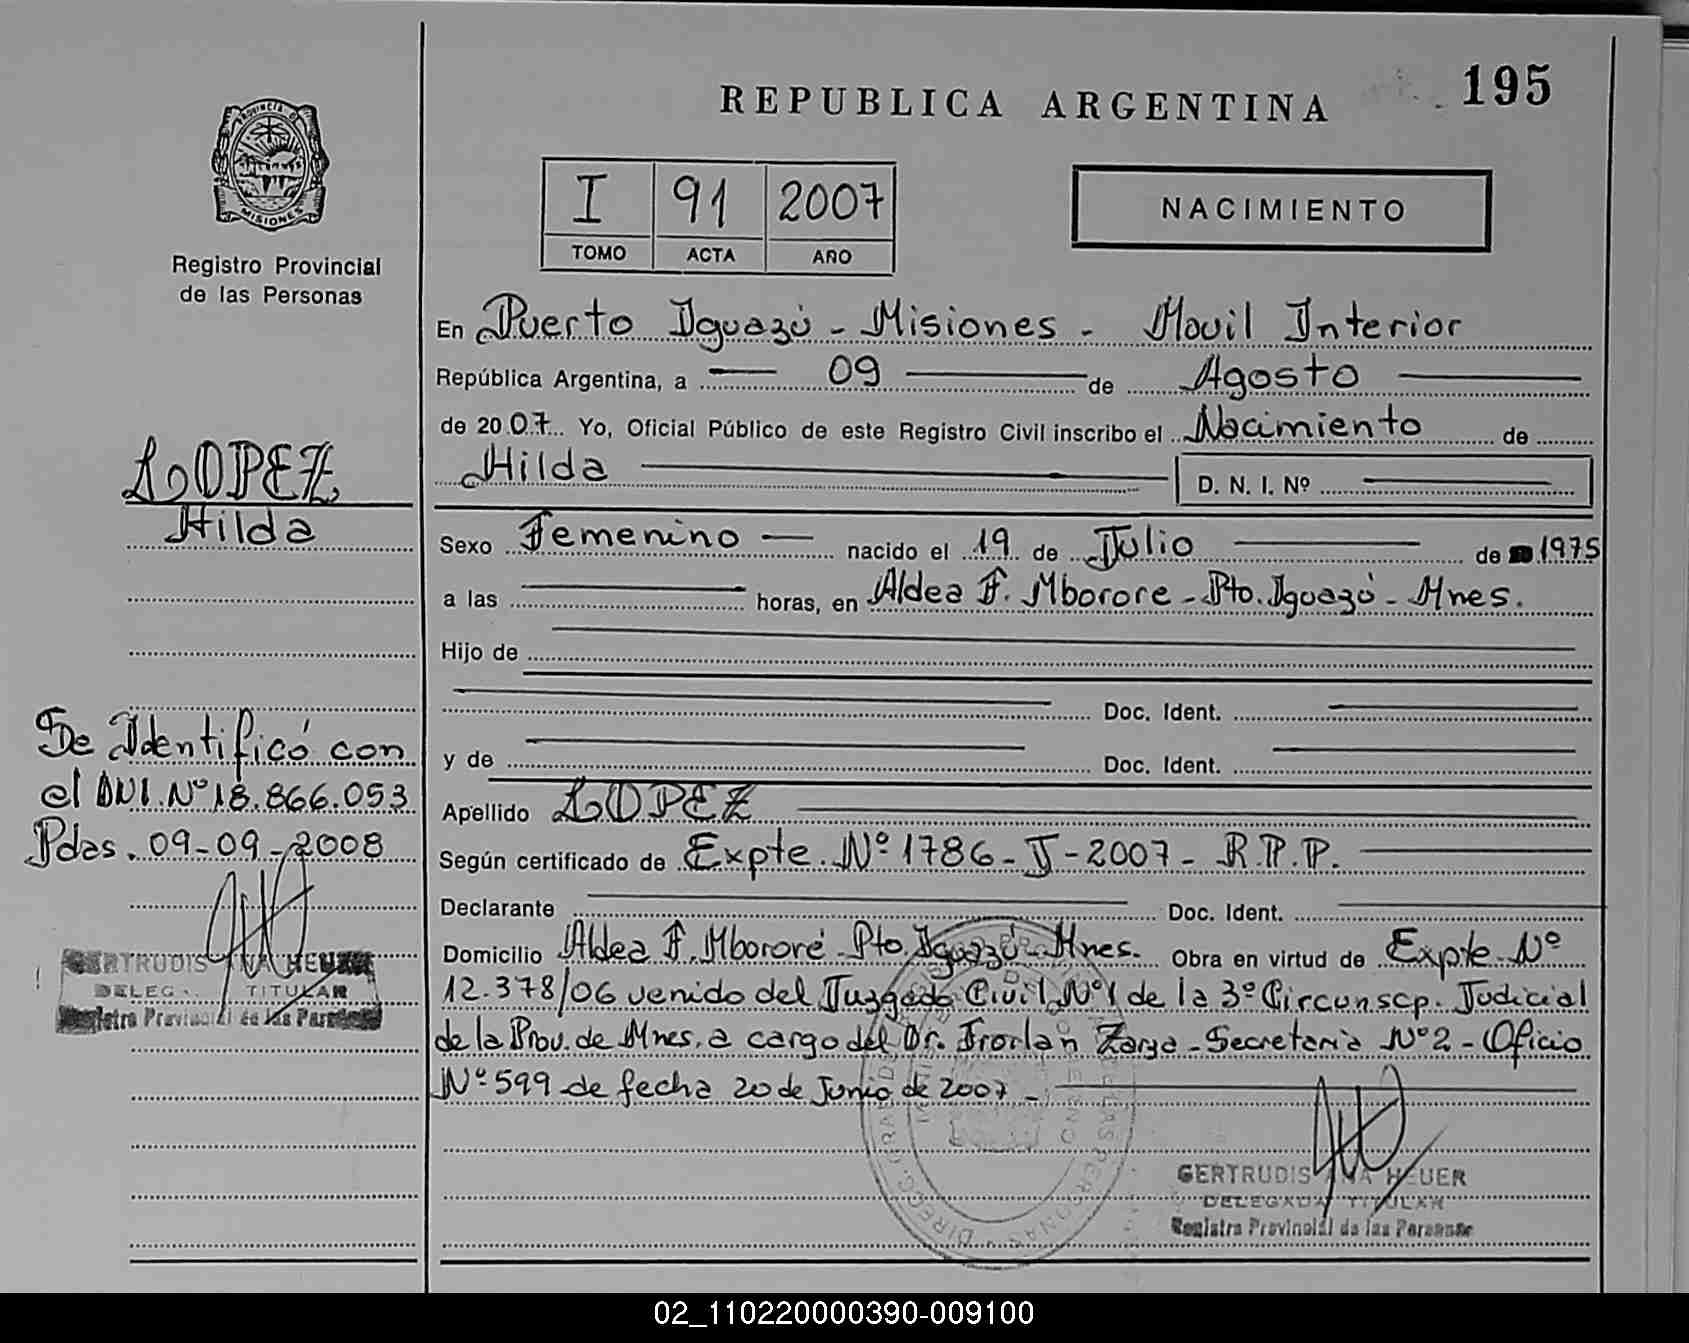 195
REPUBLICA ARGENTINA
PROVINCIA DE
MISIONES
Registro Provincial
de las Personas
I 91 2007
TOMO ACTA AÑO
NACIMIENTO
En Puerto Iguazú - Misiones - Movil Interior
República Argentina, a 09 de Agosto
de 2007 Yo, Oficial Público de este Registro Civil inscribo el Nacimiento de
Hilda D. N. I. Nº
Sexo Femenino nacido el 19 de Julio de 1975
a las horas, en Aldea F. Mborore - Pto. Iguazú - Mnes.
Hijo de
Doc. Ident.
y de Doc. Ident.
Apellido LOPEZ
Según certificado de Expte. Nº 1786 - J - 2007 - R.P.P.
Declarante Doc. Ident.
Domicilio Aldea F. Mbororé - Pto. Iguazú - Mnes. Obra en virtud de Expte Nº
12.378/06 venido del Juzgado Civil Nº 1 de la 3º Circunscp. Judicial
de la Prov. de Mnes. a cargo del Dr. Frorlan Zarza - Secretaria Nº 2 - Oficio
Nº 599 de fecha 20 de Junio de 2007 -
GERTRUDIS ANA HEUER
DELEGADA TITULAR
Registro Provincial de las Personas
LOPEZ
Hilda
Se Identificó con
el DNI. Nº 18.866.053
Pdas. 09-09-2008
GERTRUDIS ANA HEUER
DELEG TITULAR
Registro Provincial de las Personas
02_110220000390-009100